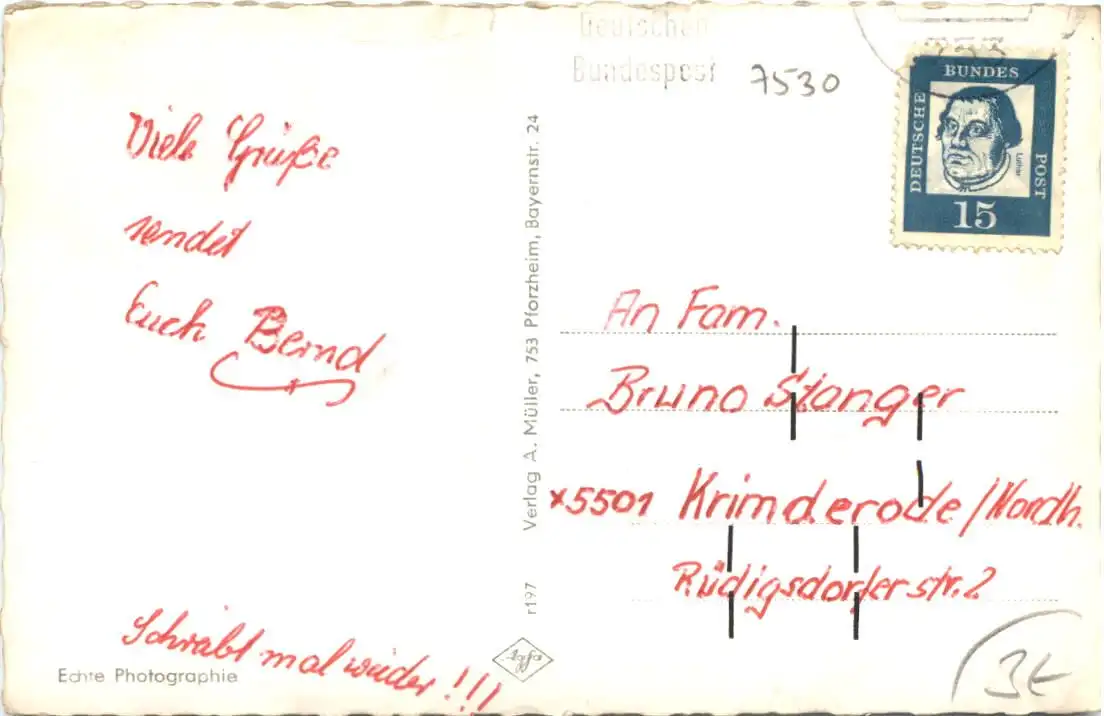 Deutschen
Bundespost
7530
DEUTSCHE
BUNDES
POST
Luther
15
Viele Grüße
sendet
Euch Bernd
Schreibt mal wieder!!!
Echte Photographie
Verlag A. Müller, 753 Pforzheim, Bayernstr. 24
r197
Agfa
An Fam.
Bruno Stanger
x5501 Krimderode/Nordh.
Rüdigsdorfer str. 2
3E